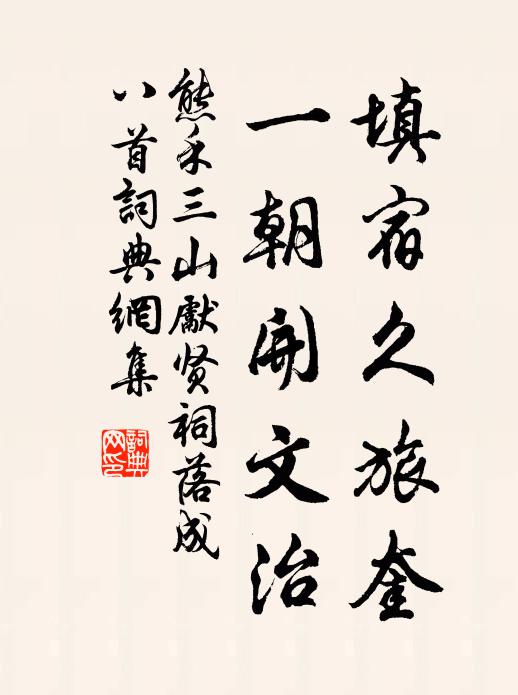 填宿久旅奎
一朝開文治
熊禾三山獻贤祠落成
八首詞典網集
詞典
网印